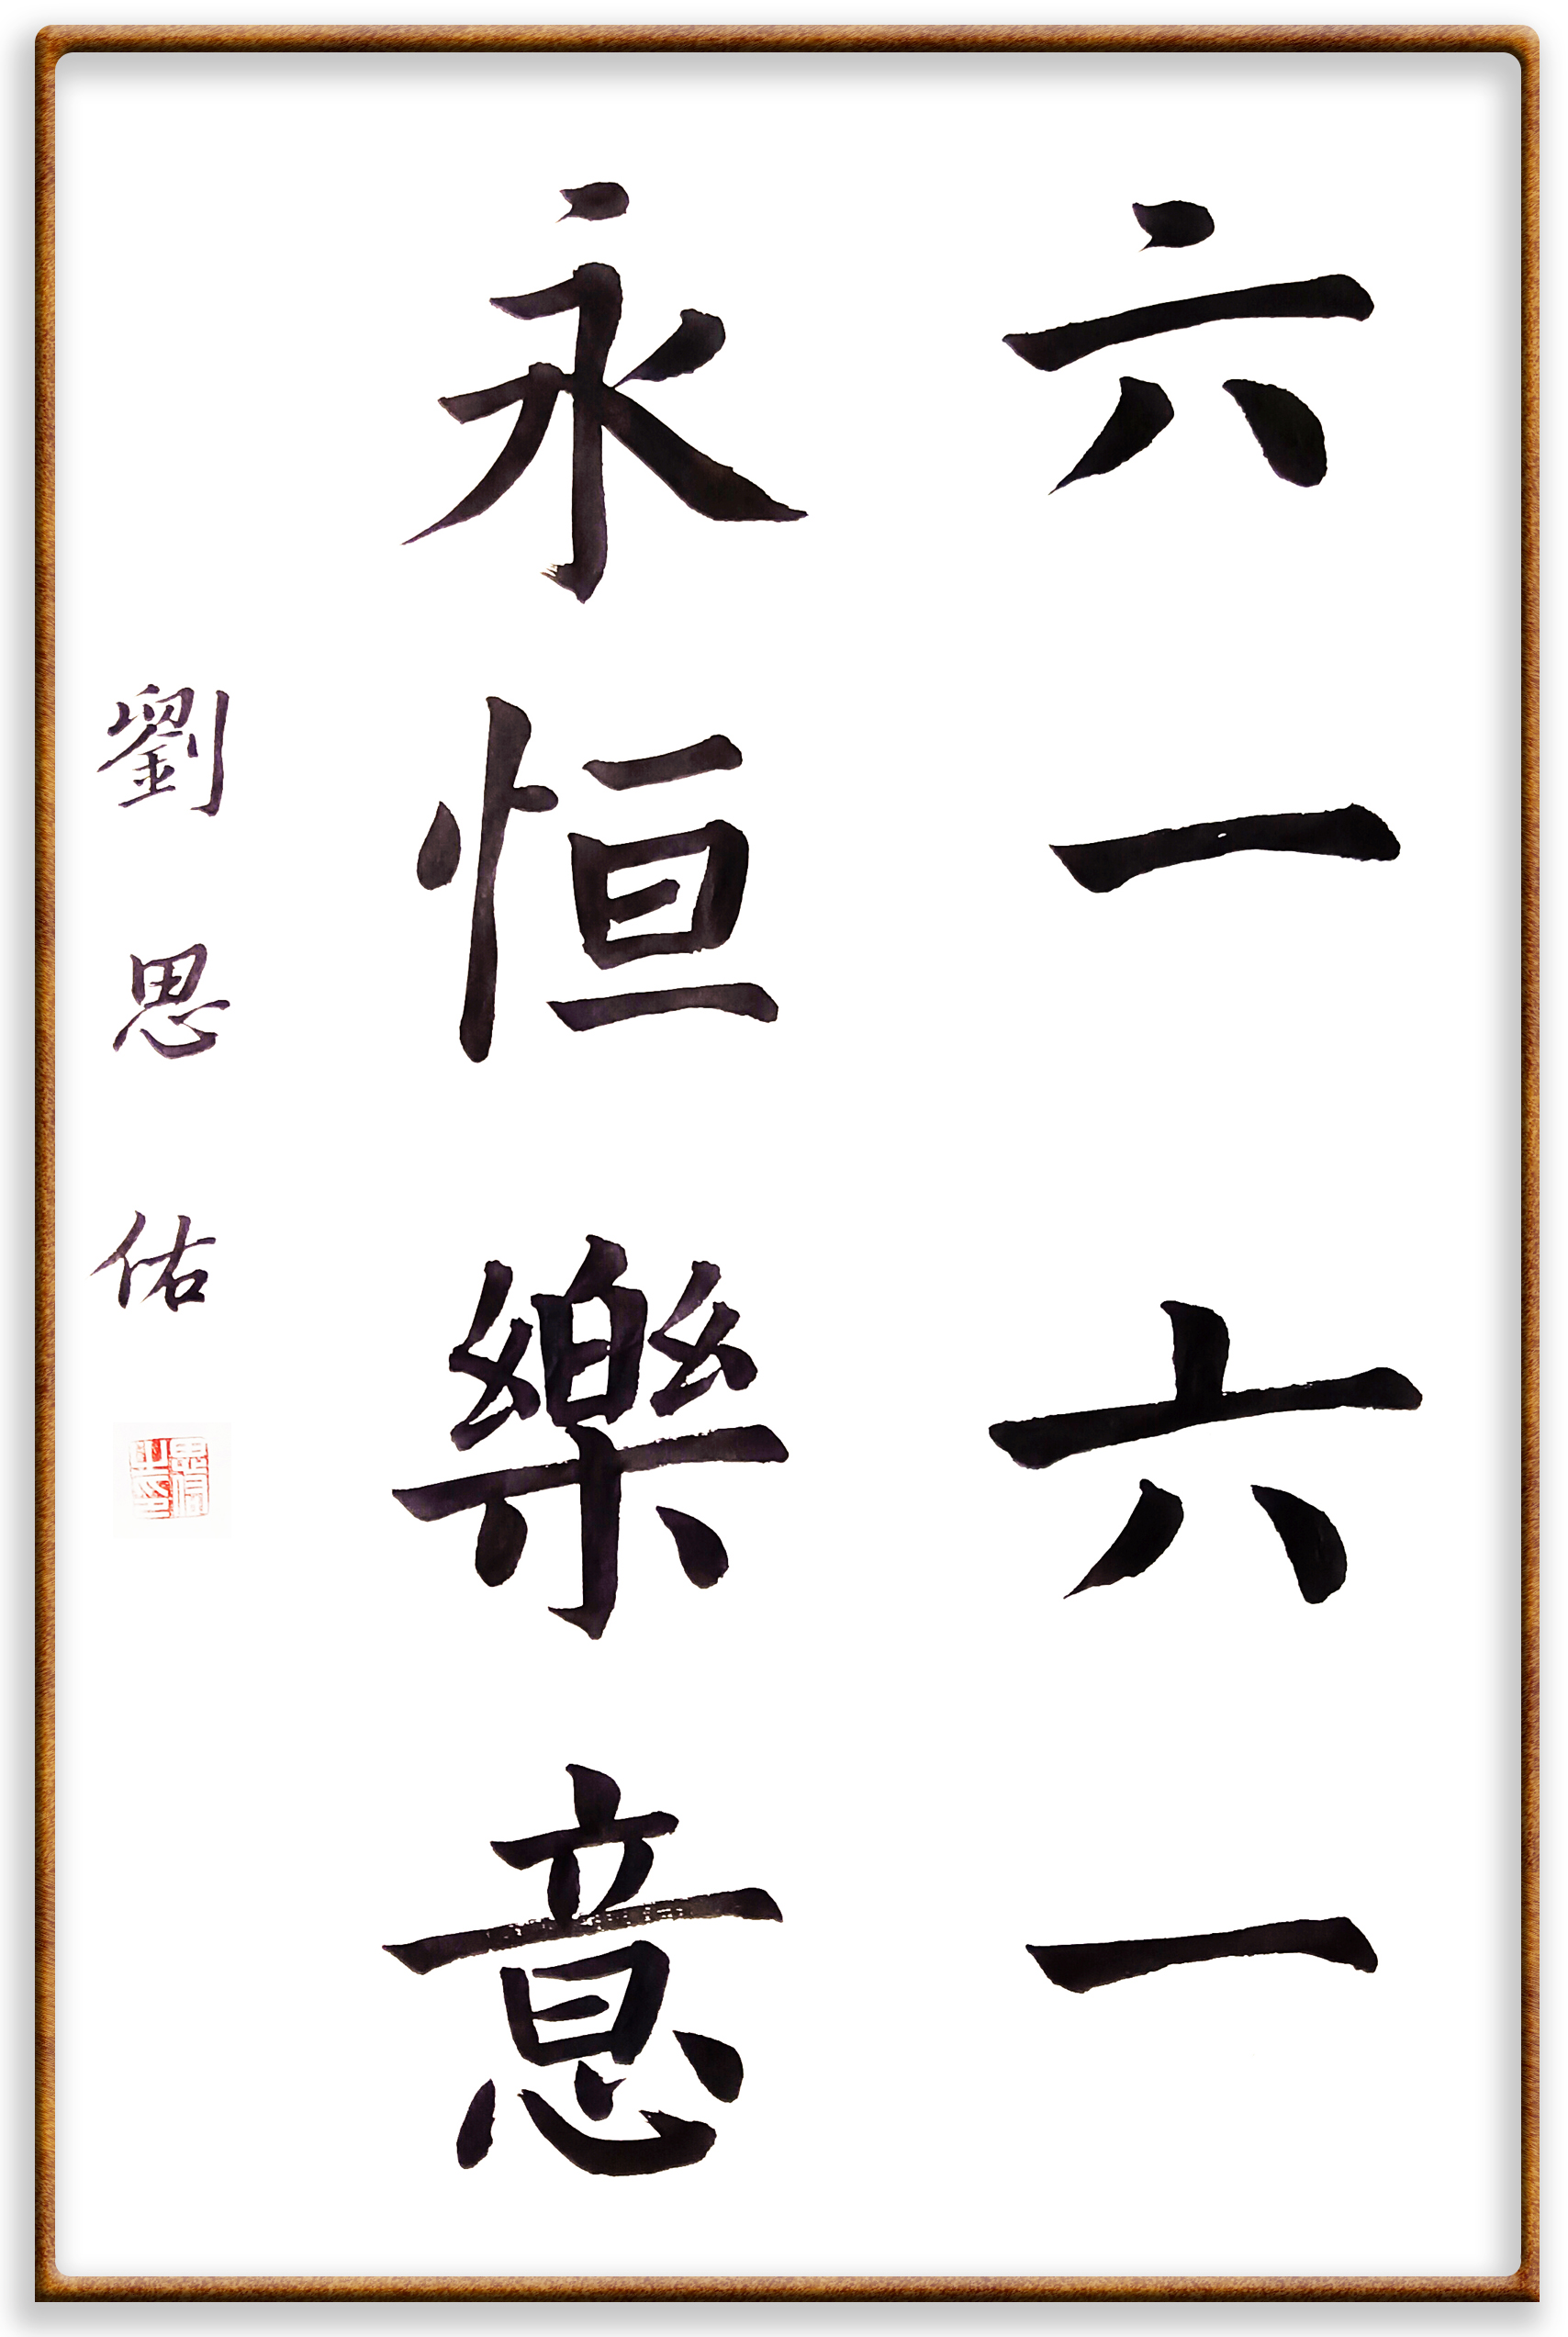 六一六一
永恒樂意
劉思佑